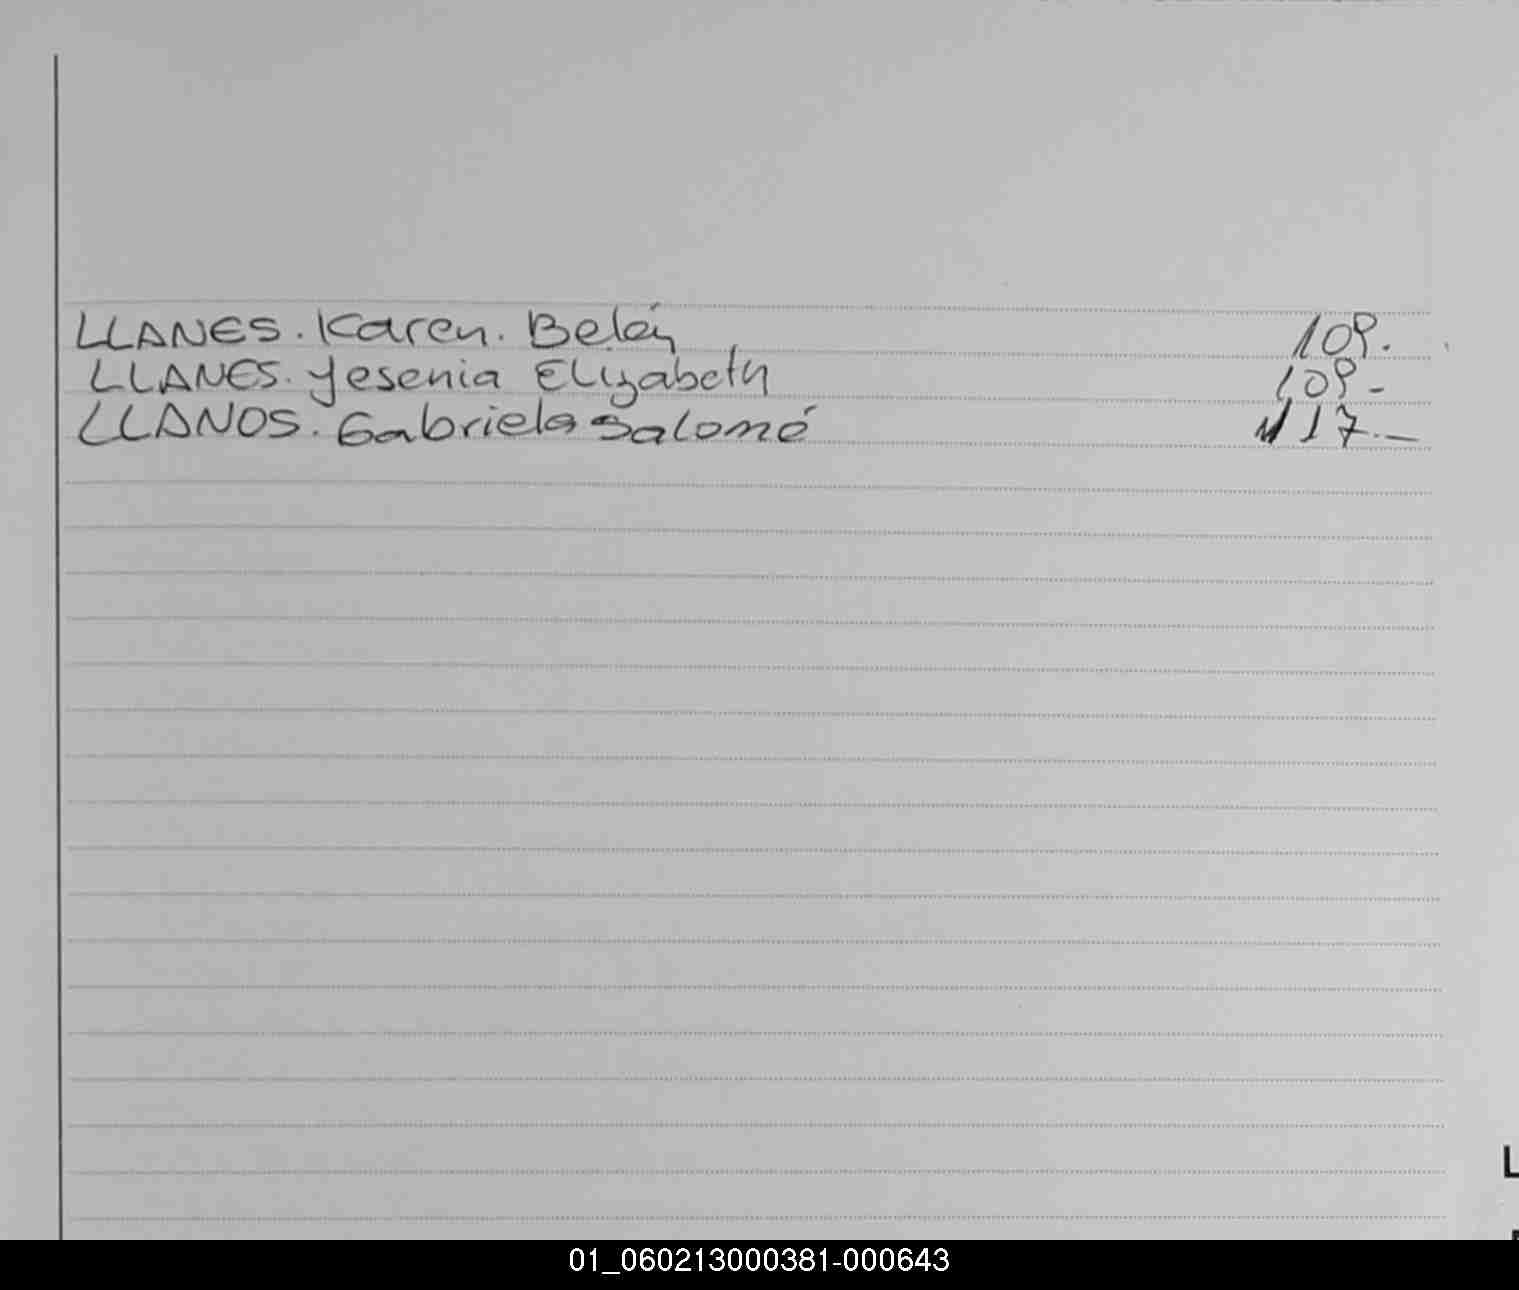 LLANES. Karen. Belén 109.
LLANES. Yesenia Elizabeth 109-
LLANOS. Gabriela Salomé 117.-
L
01_060213000381-000643